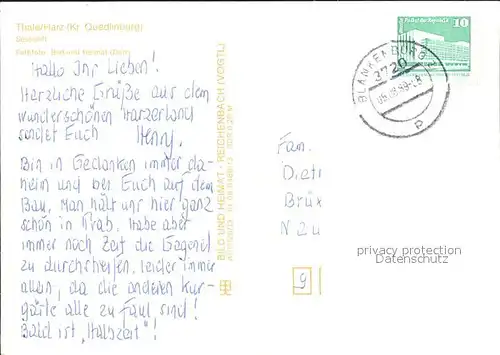 Thale/Harz (Kr. Quedlinburg)
Hallo Ihr Lieben!
Herzliche Grüße aus dem
wunderschönen Harzerland
sendet Euch Henry.
Bin in Gedanken immer da-
heim und bei Euch auf dem
Bau. Man hält uns hier ganz
schön in Trab. Habe aber
immer noch Zeit die Gegend
zu durchstreifen, leider immer
allein, da die anderen Kur-
gäste alle zu faul sind!
Bald ist „Halbzeit"!
BILD UND HEIMAT · REICHENBACH (VOGTL)
Palast der Republik
10
DDR
BLANKENBURG
3720
P
Fam.
Dieti
Brüx
N 24
privacy protection
Datenschutz
9